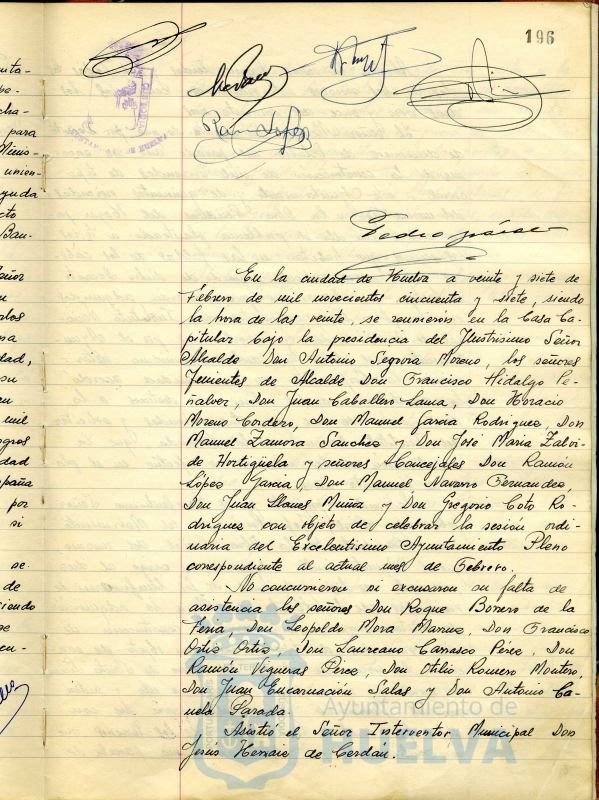 196
Ramón López
Pedro
En la ciudad de Huelva a veinte y siete de
Febrero de mil novecientos cincuenta y siete, siendo
la hora de las veinte, se reunieron en la Casa Ca-
pitular bajo la presidencia del Ilustrisimo Señor
Alcalde Don Antonio Segovia Moreno, los señores
Tenientes de Alcalde Don Francisco Hidalgo Pe-
ñalver, Don Juan Caballero Lama, Don Horacio
Moreno Cordero, Don Manuel Garcia Rodriguez, Don
Manuel Zamora Sanchez y Don José Maria Zalvi-
de Hortiguela y señores Concejales Don Ramón
López Garcia, Don Manuel Navarro Fernandez,
Don Juan Llanes Muñoz y Don Gregorio Coto Ro-
driguez con objeto de celebrar la sesión ordi-
naria del Excelentisimo Ayuntamiento Pleno
correspondiente al actual mes de Febrero.
No concurrieron ni excusaron su falta de
asistencia los señores Don Roque Borrero de la
Feria, Don Leopoldo Mora Don Francisco
Ortiz Ortiz, Don Laureano Carrasco Pérez, Don
Ramón Vigueras Pérez, Don Otilio Romero Montoro,
Don Juan Encarnación Salas y Don Antonio Ca-
Parada
Asistió el Señor Interventor Municipal Don
Jesús de Cerdán.
Ayuntamiento de
HUELVA